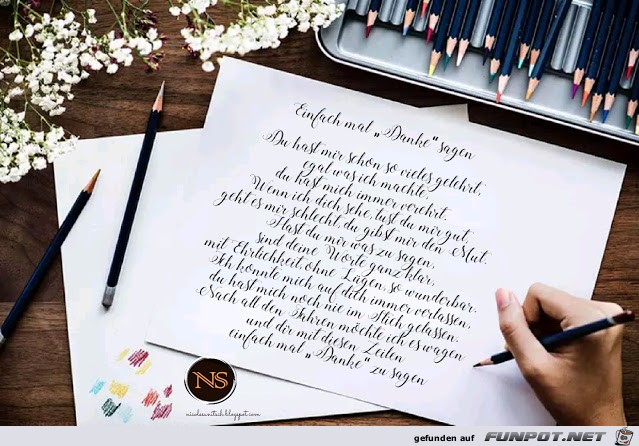 Einfach mal „Danke“ sagen
Du hast mir schon so vieles gelehrt,
egal was ich machte,
du hast mich immer verehrt.
Wenn ich dich sehe, tust du mir gut,
geht es mir schlecht, du gibst mir den Mut.
Hast du mir was zu sagen,
sind deine Worte ganz klar,
mit Ehrlichkeit, ohne Lügen, so wunderbar.
Ich konnte mich auf dich immer verlassen,
du hast mich noch nie im Stich gelassen.
Nach all den Jahren möchte ich es wagen
und dir mit diesen Zeilen
einfach mal „Danke“ zu sagen
NS
gefunden auf FUNPOT.NET